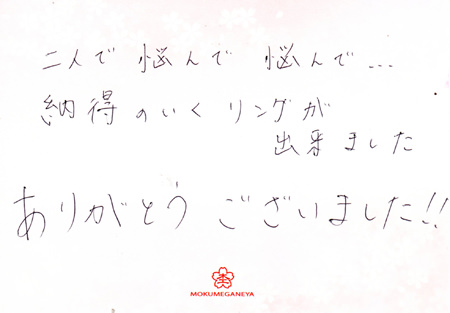 二人で 悩んで 悩んで...
納得のいく リングが
出来ました
ありがとう ございました!!
MOKUMEGANEYA